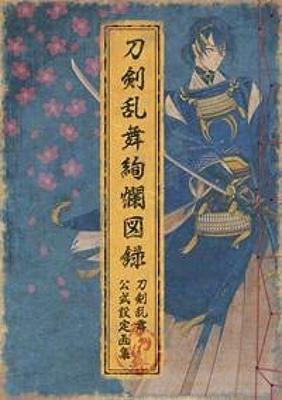 刀剣乱舞絢爛図録
刀剣乱舞
公式設定画集